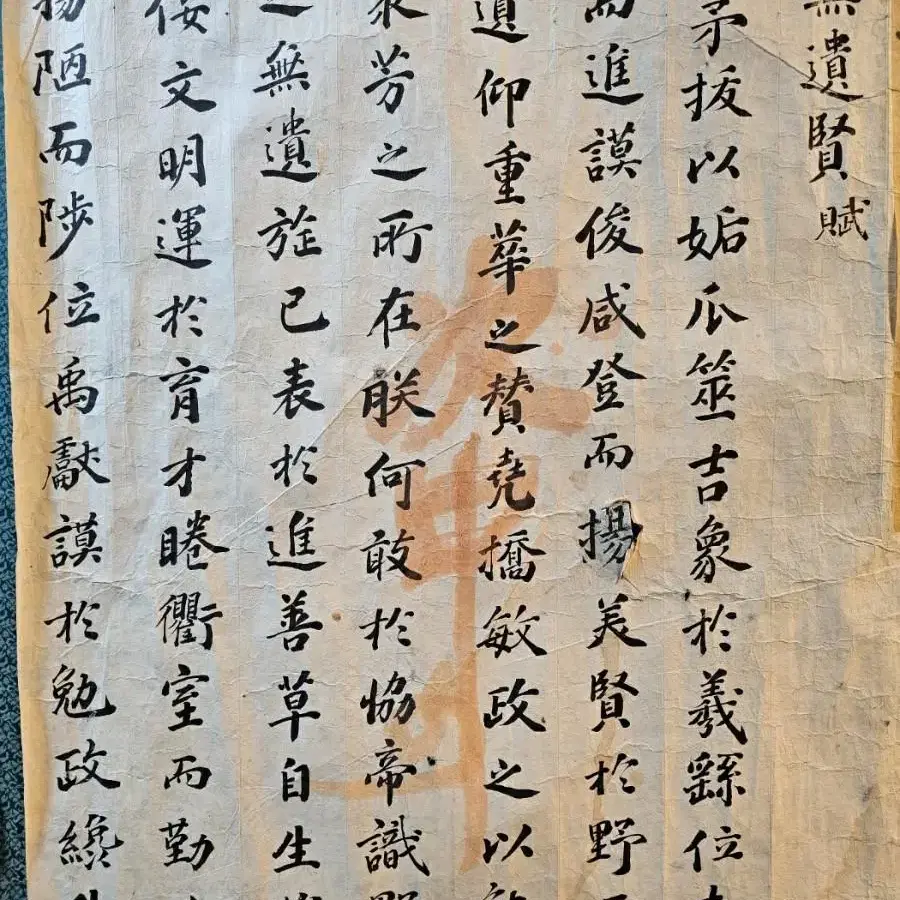 無遺賢賦
茅拔以姤瓜筮吉象於羲繇位
而進謨俊咸登而揚美賢於野
遺仰重華之贊堯搖敏政之以
衆芳之所在朕何敢於協帝識野
之無遺旌已表於進善草自生
佞文明運於育才睠衢室而勤
揚陋而陟位禹獻謨於勉政纔
次中